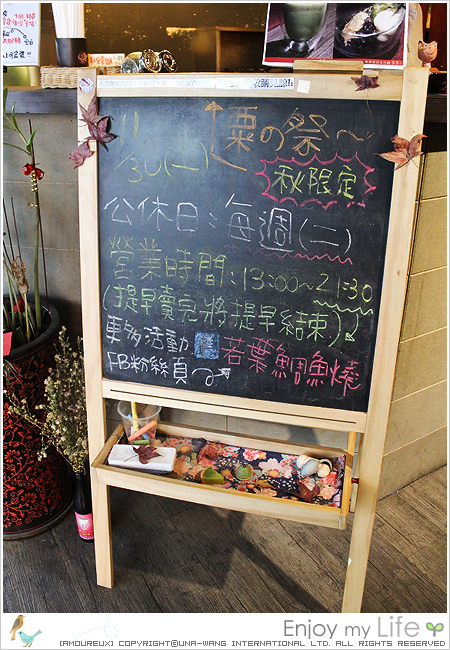 11/30(一)
栗の祭～
秋限定
公休日：每週(二)
營業時間：13:00～21:30
(提早賣完將提早結束)
更多活動
FB粉絲頁
若葉鯛魚燒
Enjoy my Life
{AMOUREUX} COPYRIGHT©UNA-WANG INTERNATIONAL LTD. ALL RIGHTS RESERVED